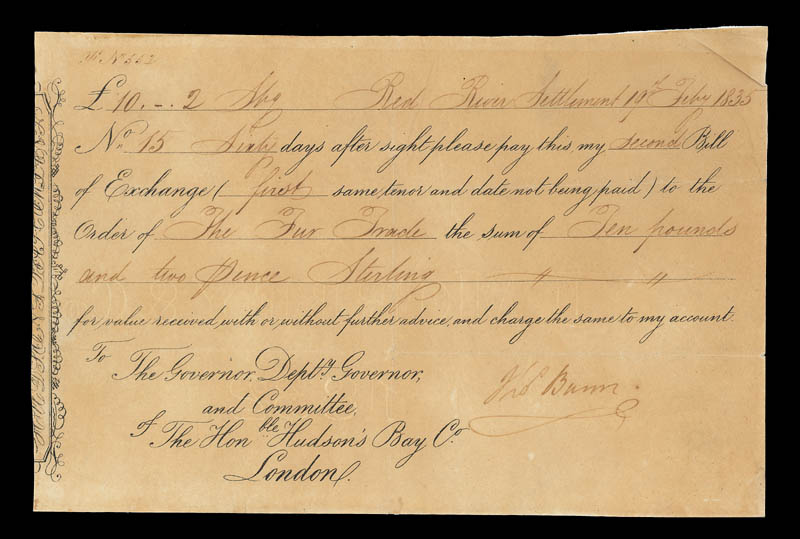 No 552
£ 10,-. 2 Stg Red River Settlement 19th Feby 1835
No. 15 Sixty days after sight please pay this my second Bill
of Exchange ( first same tenor and date not being paid ) to the
Order of The Fur Trade the sum of Ten pounds
and two pence Sterling
for value received with or without further advice, and charge the same to my account.
To The Governor, Depty. Governor,
and Committee,
of The Honble Hudson's Bay Co.
London.
Thos Bunn.